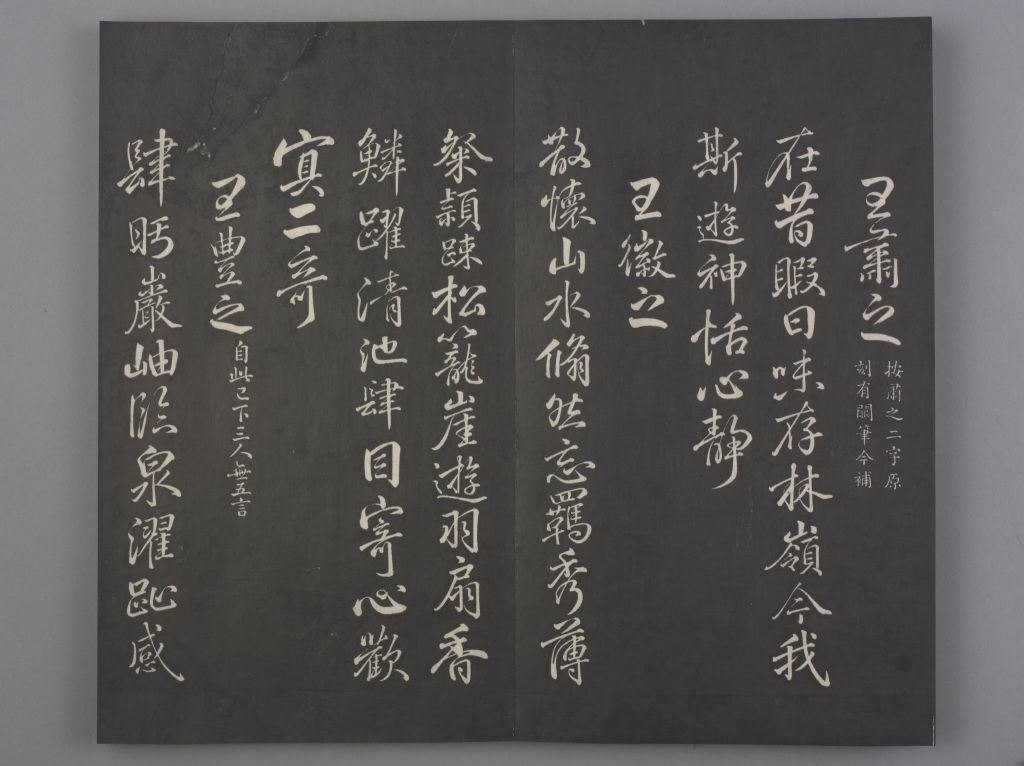 王肅之
按肅之二字原
刻有闕筆今補
在昔暇日味存林嶺今我
斯遊神恬心靜
王徽之
散懷山水翛然忘羈秀薄
粲穎疎松籠崖遊羽扇香
鱗躍清池肆目寄心歡
寘二奇
王豊之
自此已下三人無五言
肆眄巖岫臨泉濯趾感